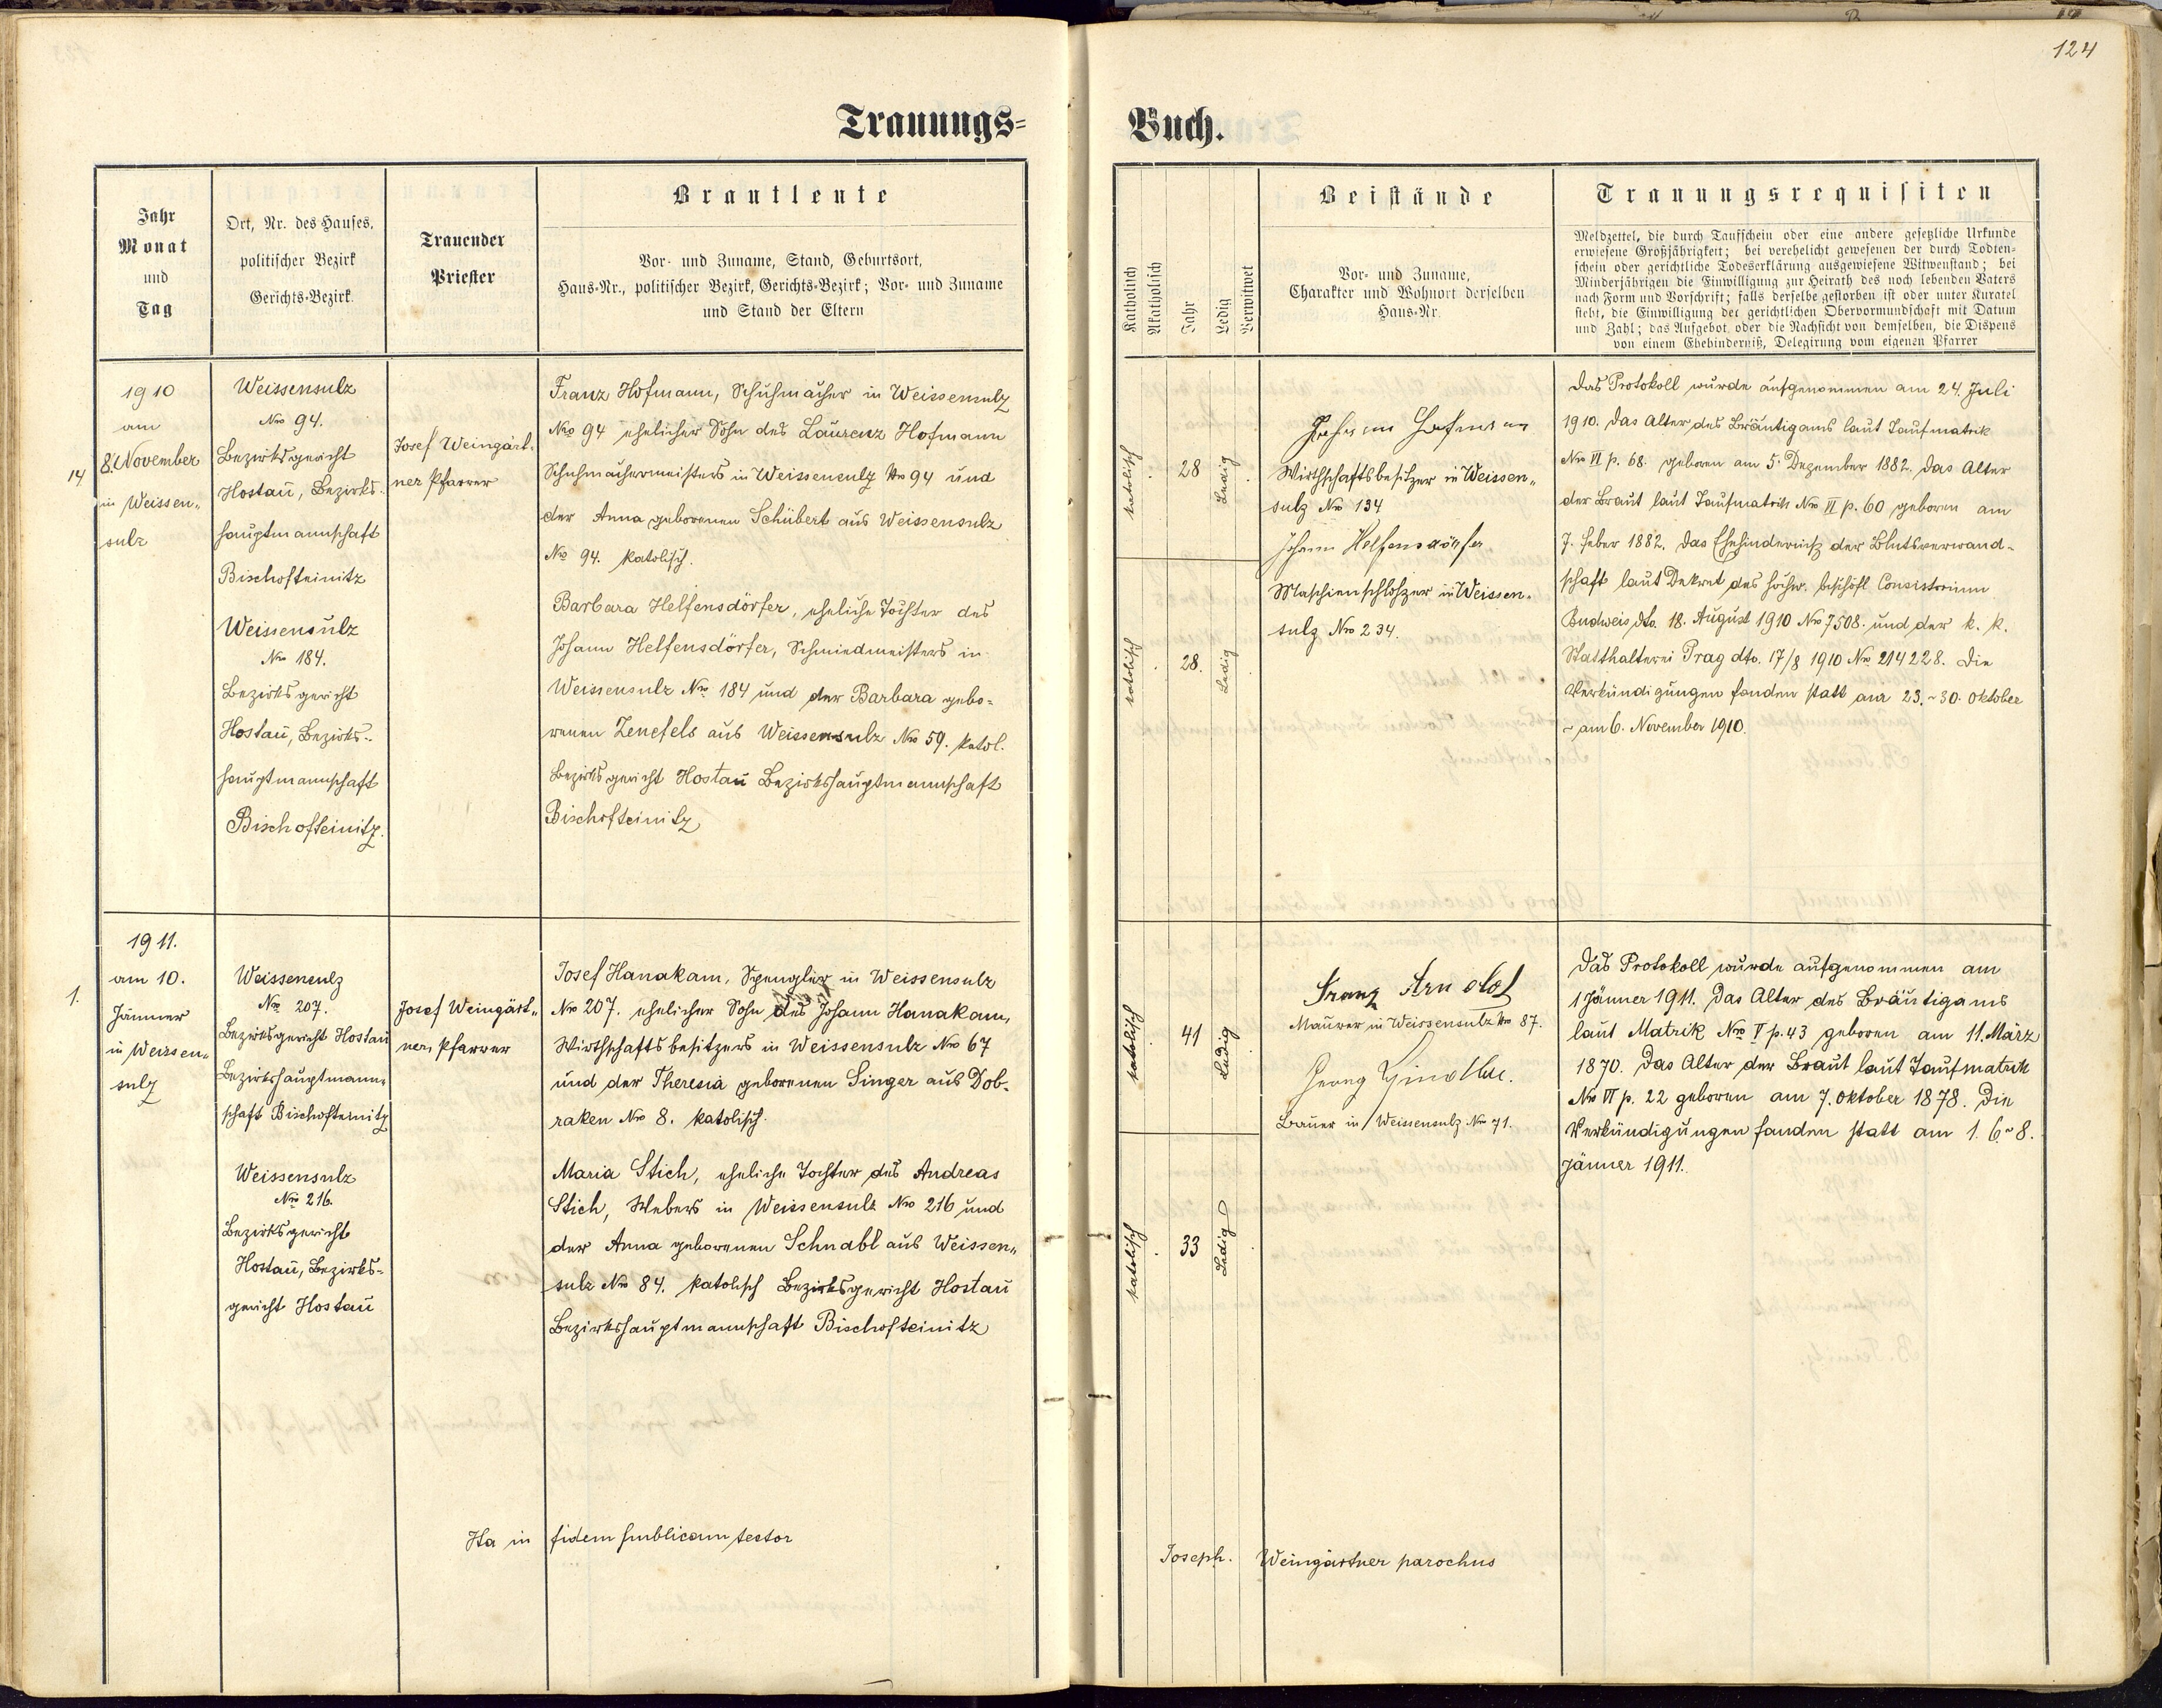 124
Trauungs=
Buch.
Jahr
Monat
und
Tag
Ort, Nr. des Hauses,
politischer Bezirk
Gerichts-Bezirk.
Trauender
Priester
Brautleute
Vor- und Zuname, Stand, Geburtsort,
Haus-Nr., politischer Bezirk, Gerichts-Bezirk; Vor- und Zuname
und Stand der Eltern
Katholisch
Akatholisch
Jahr
Ledig
Verwitwet
Beistände
Vor- und Zuname,
Charakter und Wohnort derselben
Haus-Nr.
Trauungsrequisiten
Meldzettel, die durch Taufschein oder eine andere gesetzliche Urkunde
erwiesene Großjährigkeit; bei verehelicht gewesenen der durch Todten-
schein oder gerichtliche Todeserklärung ausgewiesene Witwenstand; bei
Minderjährigen die Einwilligung zur Heirath des noch lebenden Vaters
nach Form und Vorschrift; falls derselbe gestorben ist oder unter Kuratel
steht, die Einwilligung der gerichtlichen Obervormundschaft mit Datum
und Zahl; das Aufgebot oder die Nachsicht von demselben, die Dispens
von einem Ehehinderniß, Delegirung vom eigenen Pfarrer
14
1910
am
8. November
in Weissen„
sulz
Weissensulz
Nro 94.
Bezirksgericht
Hostau, Bezirks-
hauptmannschaft
Bischofteinitz
Weissensulz
Nro 184.
Bezirksgericht
Hostau, Bezirks-
hauptmannschaft
Bischofteinitz.
Josef Weingärt-
ner Pfarrer
Franz Hofmann, Schuhmacher in Weissensulz
Nro 94 ehelicher Sohn des Laurenz Hofmann
Schuhmachermeisters in Weissensulz Nro 94 und
der Anna geborenen Schubert aus Weissensulz
Nro 94. katolisch.
Barbara Helfensdörfer, eheliche Tochter des
Johann Helfensdörfer, Schmiedmeisters in
Weissensulz Nro 184 und der Barbara gebo=
renen Zenefels aus Weissensulz Nro 59. katol.
Bezirksgericht Hostau Bezirkshauptmannschaft
Bischofteinitz
katolisch
28
Ledig
katolisch
28.
Ledig
Hofmann
Wirthschaftsbesitzer in Weissen„
sulz Nro 134
Johann Helfensdörfer
Maschienschloszer in Weissen„
sulz Nro 234.
Das Protokoll wurde aufgenommen am 24. Juli
1910. Das Alter des Bräutigams laut Taufmatrik
Nro VI p. 68. geboren am 5. Dezember 1882. Das Alter
der Braut laut Taufmatrik Nro VI p. 60 geboren am
7. Feber 1882. Das Ehehinderniß der Blutsverwand-
schaft laut Dekret des hochw. bischöfl Consistorium
Budweis dto. 18. August 1910 Nro 7508. und der k. k.
Statthalterei Prag dto. 17/8 1910 Nro 214228. Die
Verkündigungen fanden statt am 23. ~ 30. Oktober
~ am 6. November 1910.
1.
1911.
am 10.
Jänner
in Weissen„
sulz
Weissensulz
Nro 207.
Bezirksgericht Hostau
Bezirkshauptmann„
schaft Bischofteinitz
Weissensulz
Nro 216.
Bezirksgericht
Hostau, Bezirks=
gericht Hostau
Josef Weingärt„
ner, Pfarrer
Josef Hanakam, Spengler in Weissensulz
Nro 207. ehelicher Sohn des Johann Hanakam,
Wirthschaftsbesitzers in Weissensulz Nro 67
und der Theresia geborenen Singer aus Dob-
raken Nro 8. katolisch.
Maria Stich, eheliche Tochter des Andreas
Stich, Webers in Weissensulz Nro 216 und
der Anna geborenen Schnabl aus Weissen„
sulz Nro 84. katolisch Bezirksgericht Hostau
Bezirkshauptmannschaft Bischofteinitz
katolisch
41
Ledig
katolisch
33
Ledig
Franz Arnold
Maurer in Weissensulz Nro 87.
Georg
Bauer in Weissensulz Nro 71.
Das Protokoll wurde aufgenommen am
1 Jänner 1911. Das Alter des Bräutigams
laut Matrik Nro V p. 43 geboren am 11. März
1870. Das Alter der Braut laut Taufmatrik
Nro VI p. 22 geboren am 7. Oktober 1878. Die
Verkündigungen fanden statt am 1. 6 ~ 8.
Jänner 1911.
Ita in fidem publicam testor
Joseph. Weingärtner parochus